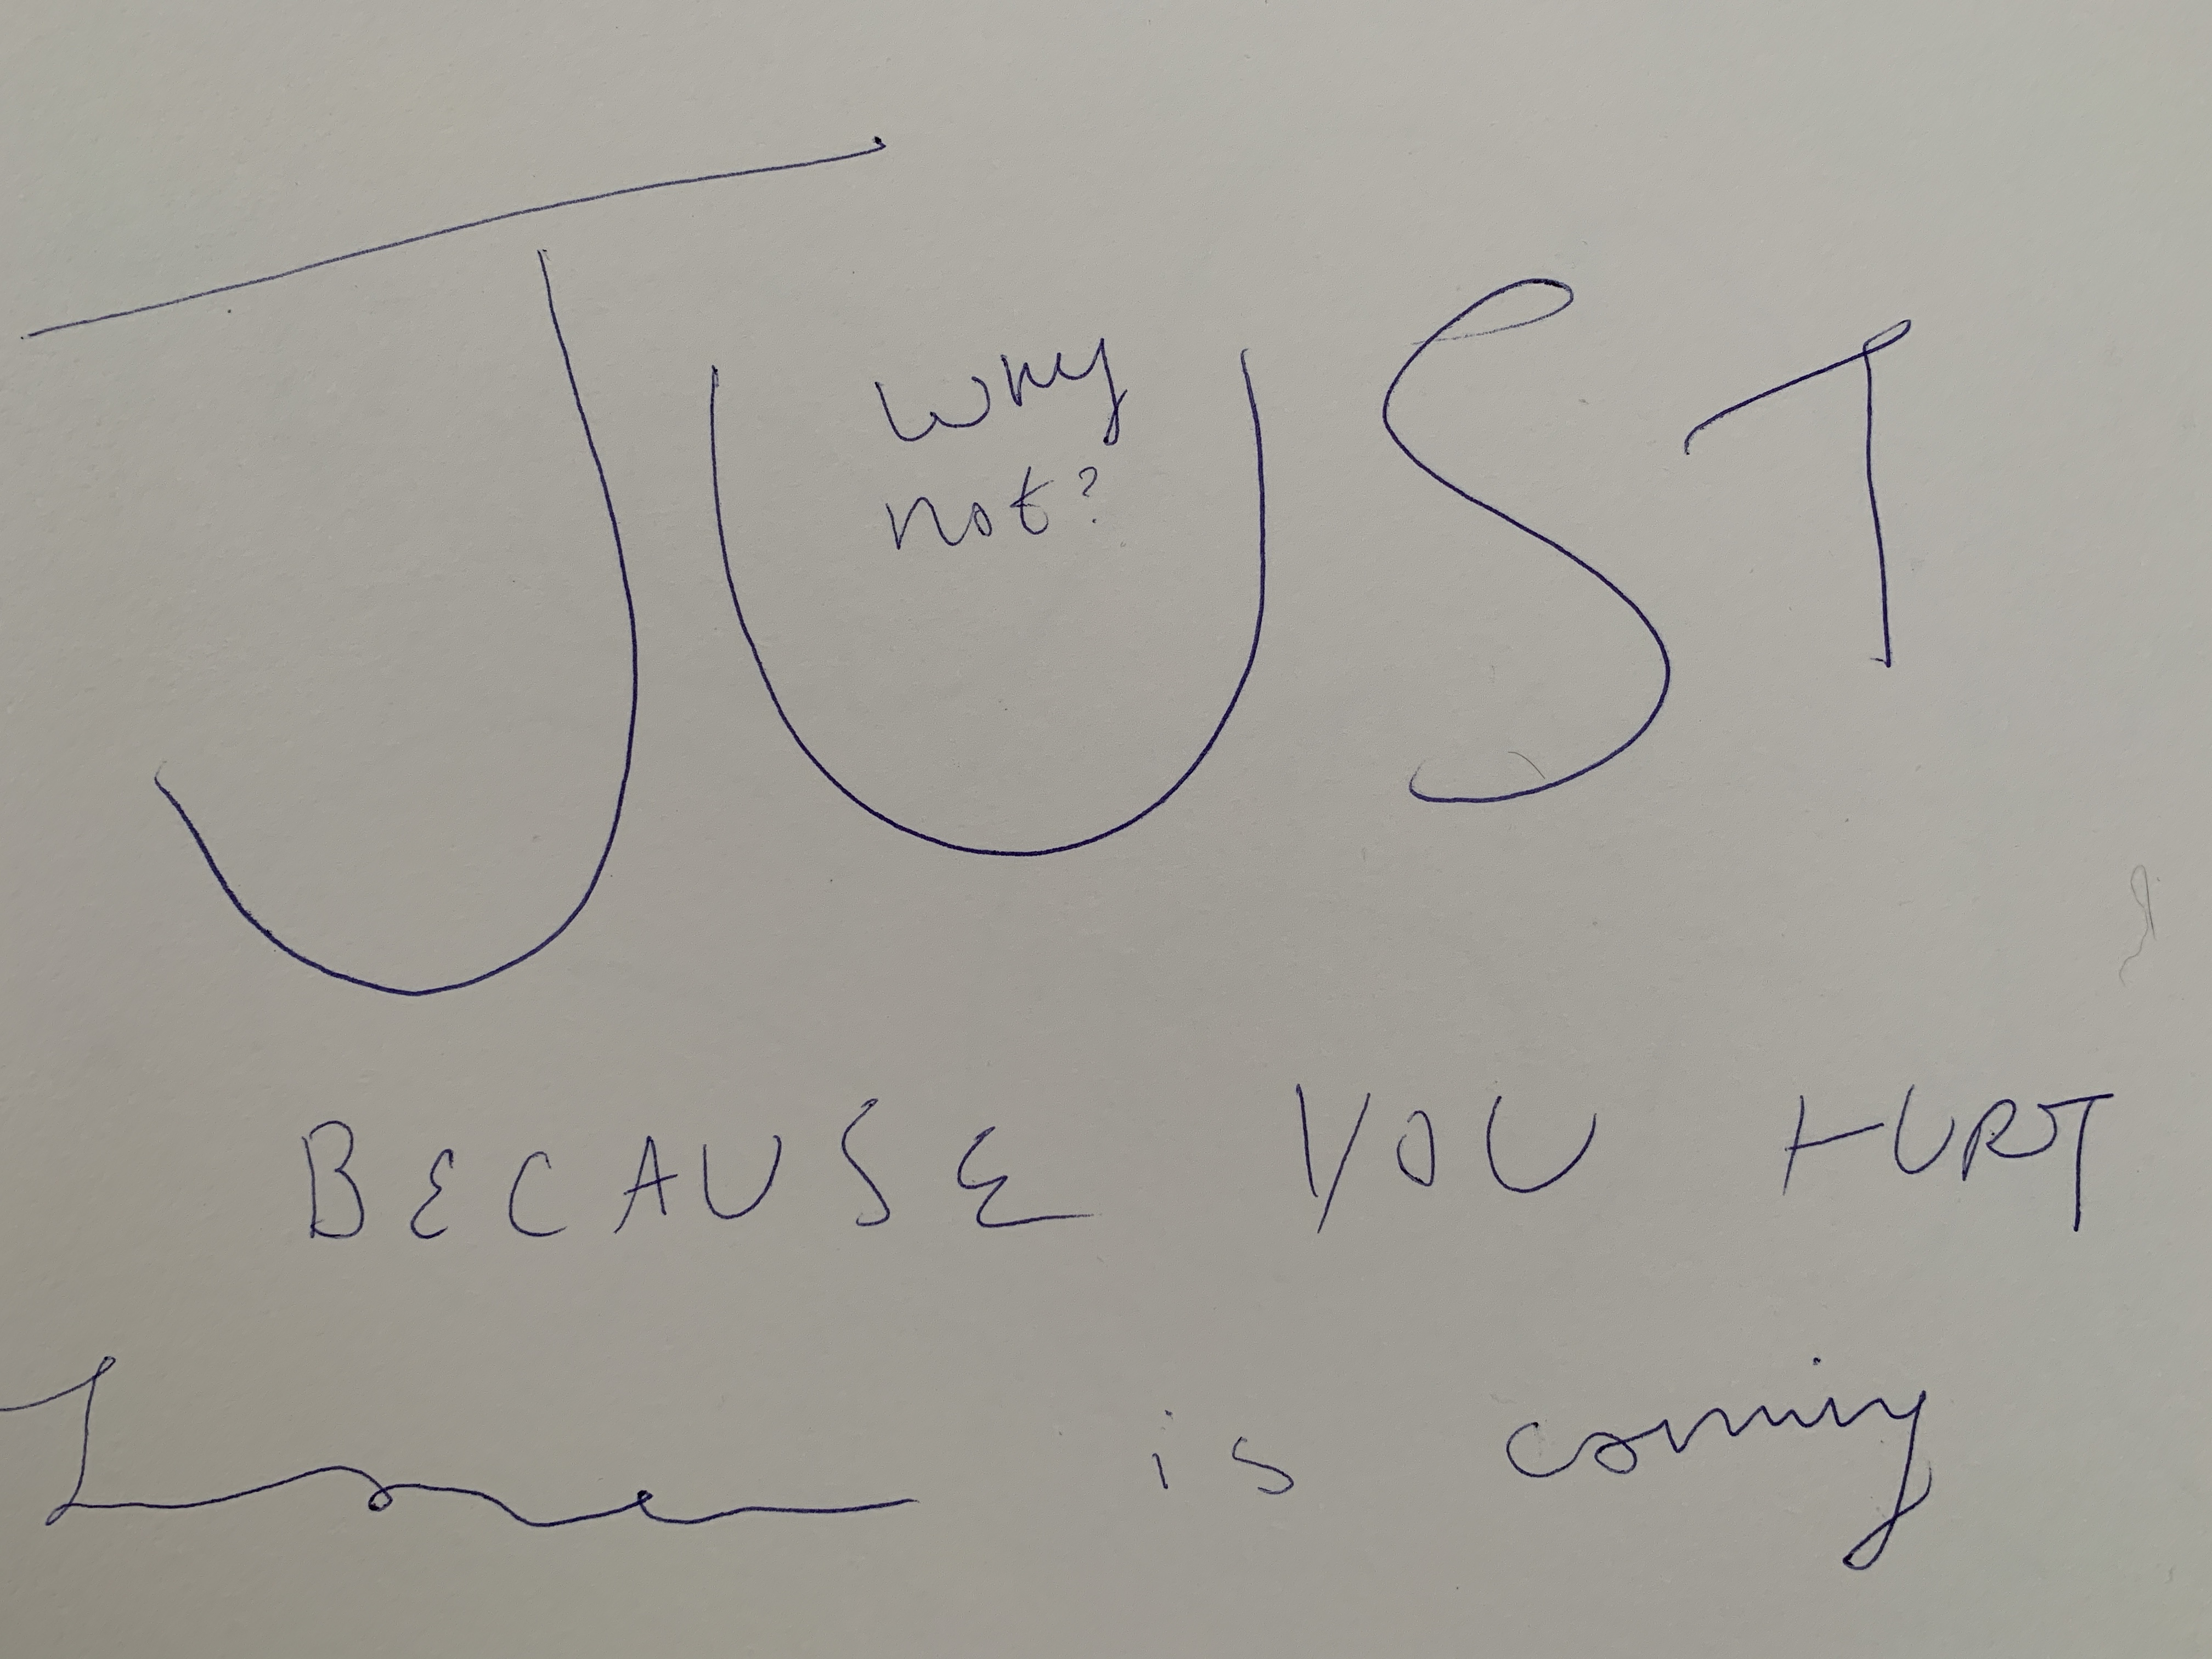 JUST
why
not?
BECAUSE YOU HURT
is coming